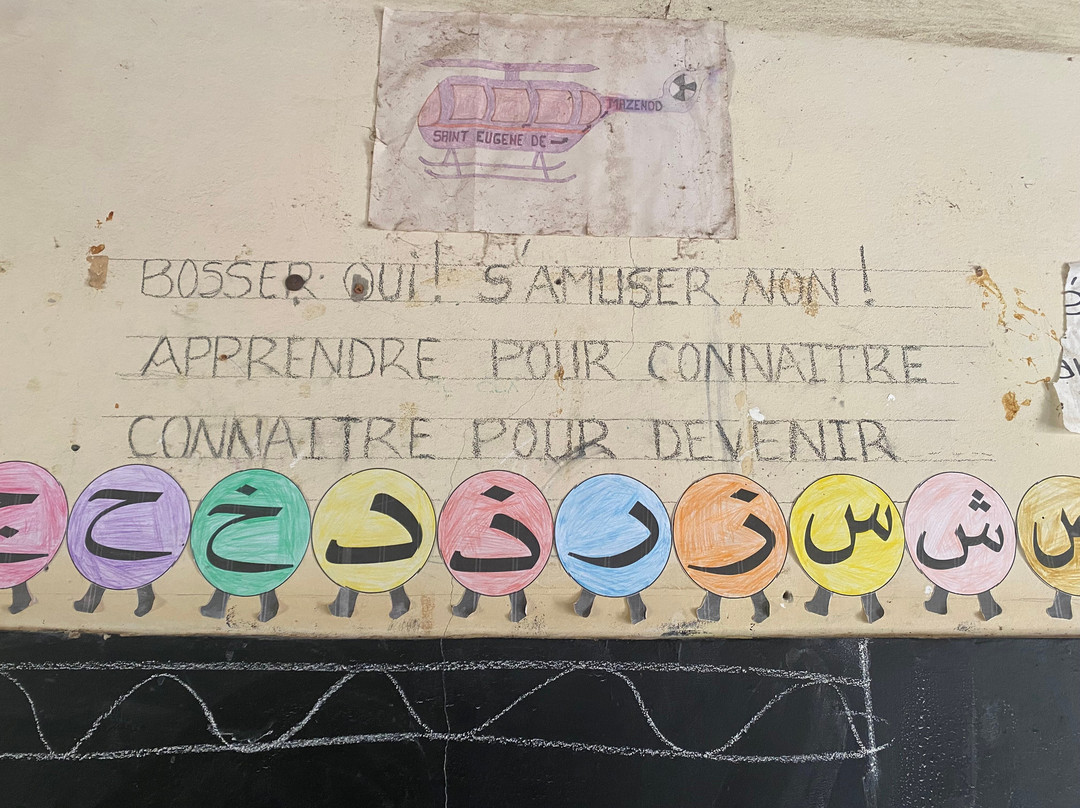 MAZENOD
SAINT EUGENE DE -
BOSSER OUI! S'AMUSER NON !
APPRENDRE POUR CONNAITRE
CONNAITRE POUR DEVENIR
ج ح خ د ذ ر ز س ش